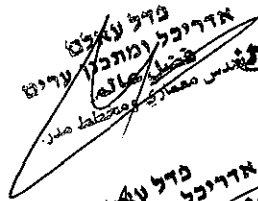 פדל עאלם
אדריכל ומתכנן ערים
فضل عالم
مهندس معماري ومخطط مدن
פדל
אדריכל